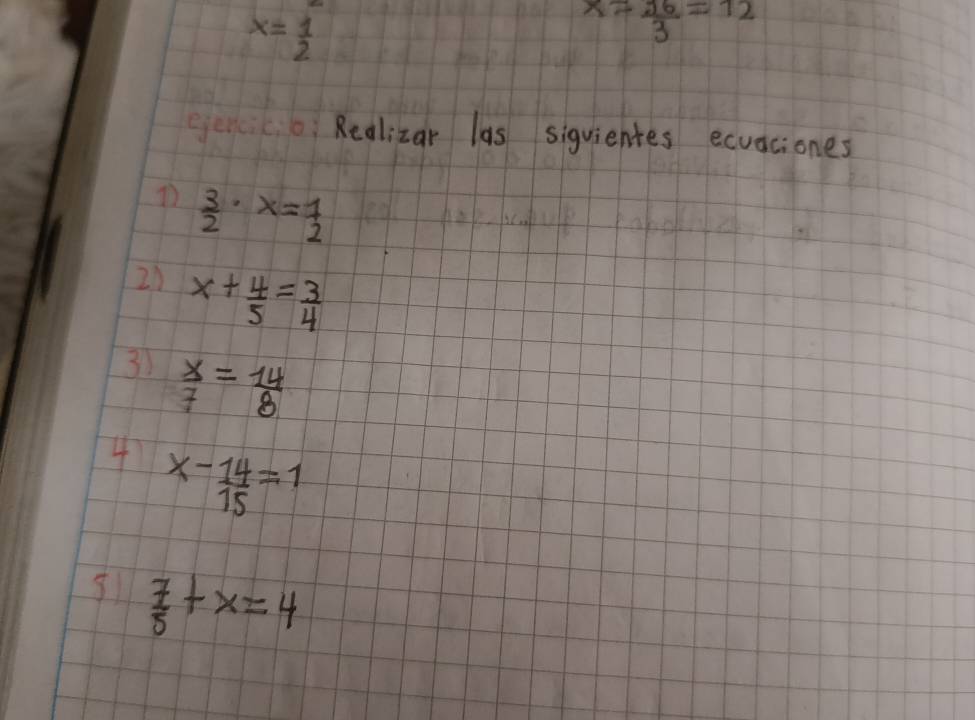 x = 1/2
x = 36/3 = 12
ejercicio: Realizar las siguientes ecuaciones
1) 3/2 · x = 1/2
2) x + 4/5 = 3/4
3) x/7 = 14/8
4) x - 14/15 = 1
5) 7/5 + x = 4